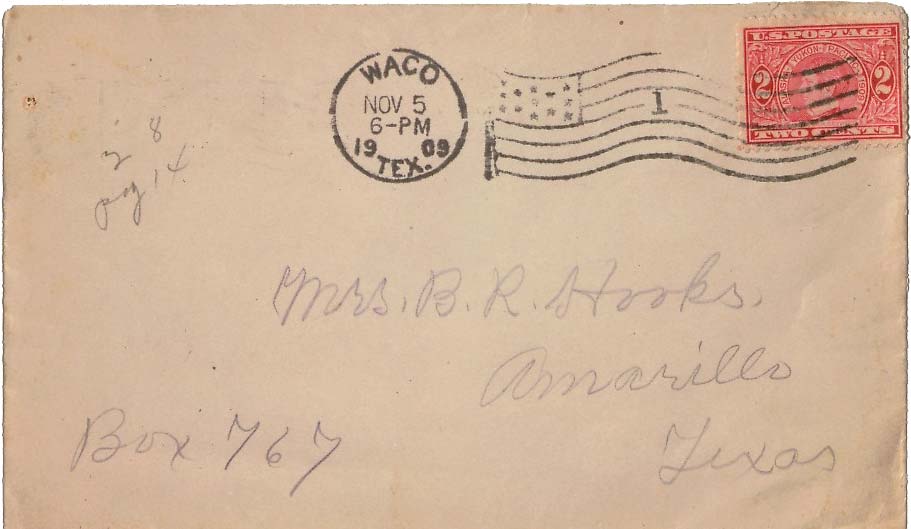 WACO
NOV 5
6-PM
19 09
TEX.
1
U.S. POSTAGE
ALASKA YUKON-PACIFIC 1909
2 2
TWO CENTS
2 8
pg 14
Mrs. B. R. Hooks.
Amarillo
Box 767
Texas